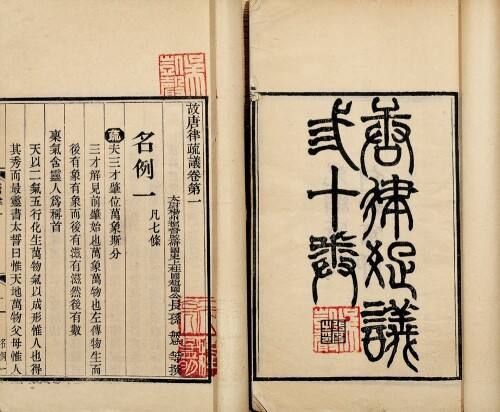 唐律疏議
弎十卷
故唐律疏議卷第一
太尉揚州都督監修國史上柱國趙國公長孫無忌等撰
名例一 凡七條
疏夫三才肇位萬象斯分
三才解見前肇始也萬象萬物也左傳物生而
後有象有象而後有滋有滋然後有數
稟氣含靈人爲稱首
天以二氣五行化生萬物氣以成形惟人也得
其秀而最靈書太誓曰惟天地萬物父母惟人
名例一